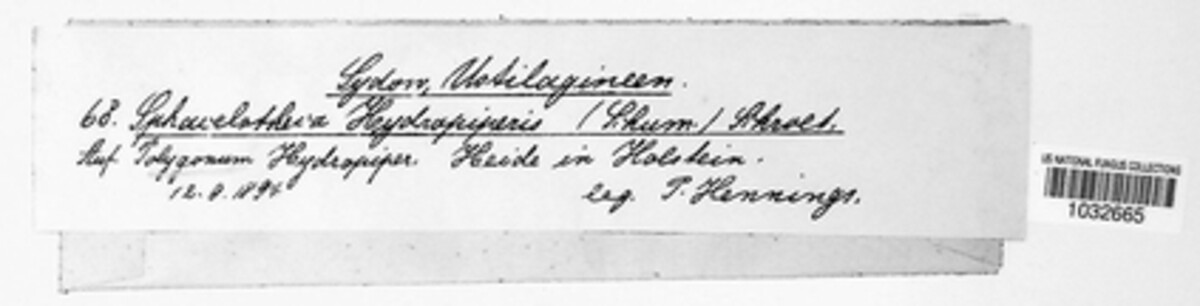 Sydow, Ustilagineen.
68. Sphacelotheca Hydropiperis (Schum.) Schroet.
Auf Polygonum Hydropiper. Heide in Holstein.
12. 9. 1894 leg. P. Hennings.
US NATIONAL FUNGUS COLLECTIONS
1032665